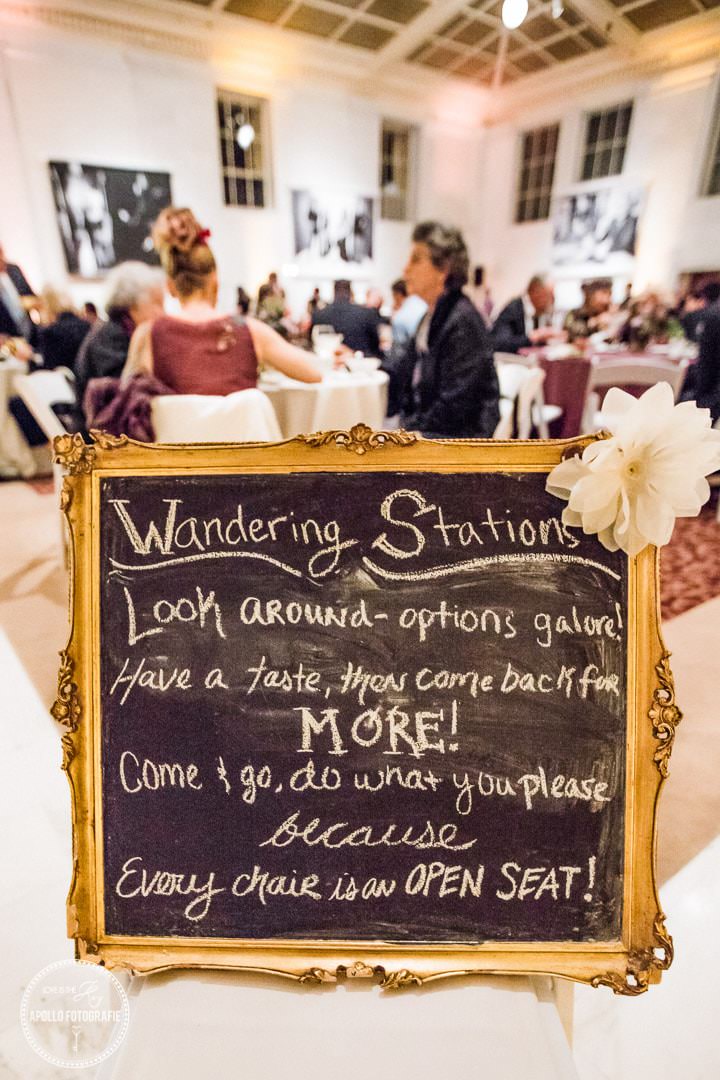 Wandering Stations
Look AROUND - options galore!
Have a taste, then come back for
MORE!
Come & go, do what you please
because
Every chair is an OPEN SEAT!
APOLLO FOTOGRAFIE